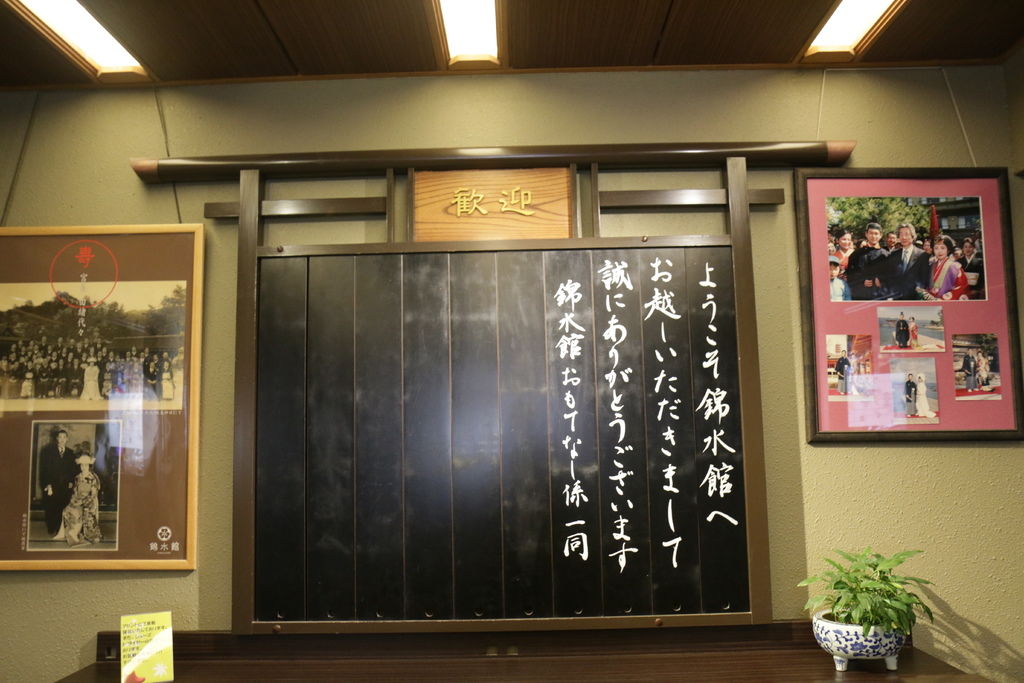 歓迎
ようこそ錦水館へ
お越しいただきまして
誠にありがとうございます
錦水館おもてなし係一同
寿
錦水館